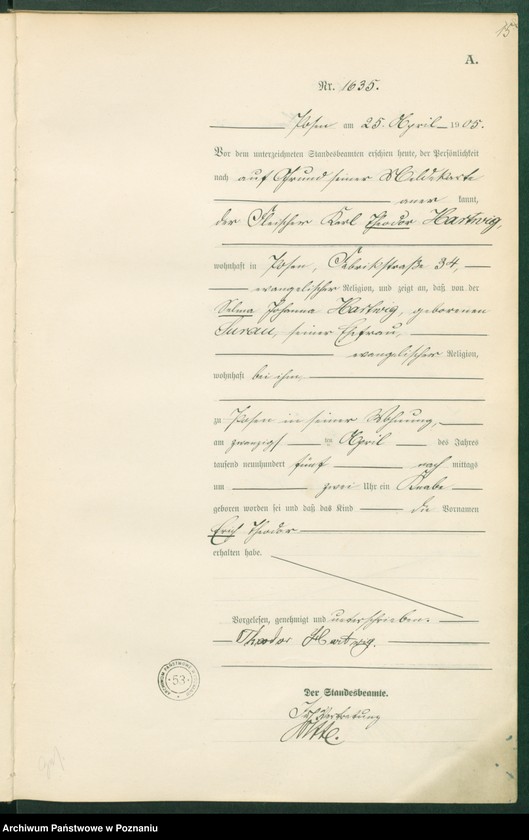 15
A.
Nr. 1635.
Posen am 25. April 1905.
Vor dem unterzeichneten Standesbeamten erschien heute, der Persönlichkeit
nach auf Grund seiner Meldekarte
aner kannt,
der Fleischer Karl Theodor Hartwig,
wohnhaft in Posen, Fabrikstraße 34,
evangelischer Religion, und zeigt an, daß von der
Selma Johanna Hartwig, geborenen
Turau, seiner Ehefrau,
evangelischer Religion,
wohnhaft bei ihm,
zu Posen in seiner Wohnung,
am zwanzigsten April des Jahres
tausend neunhundert fünf nach mittags
um zwei Uhr ein Knabe
geboren worden sei und daß das Kind die Vornamen
Erich Theodor
erhalten habe.
Vorgelesen, genehmigt und unterschrieben.
Theodor Hartwig.
Der Standesbeamte.
In Vertretung
53
Archiwum Państwowe w Poznaniu